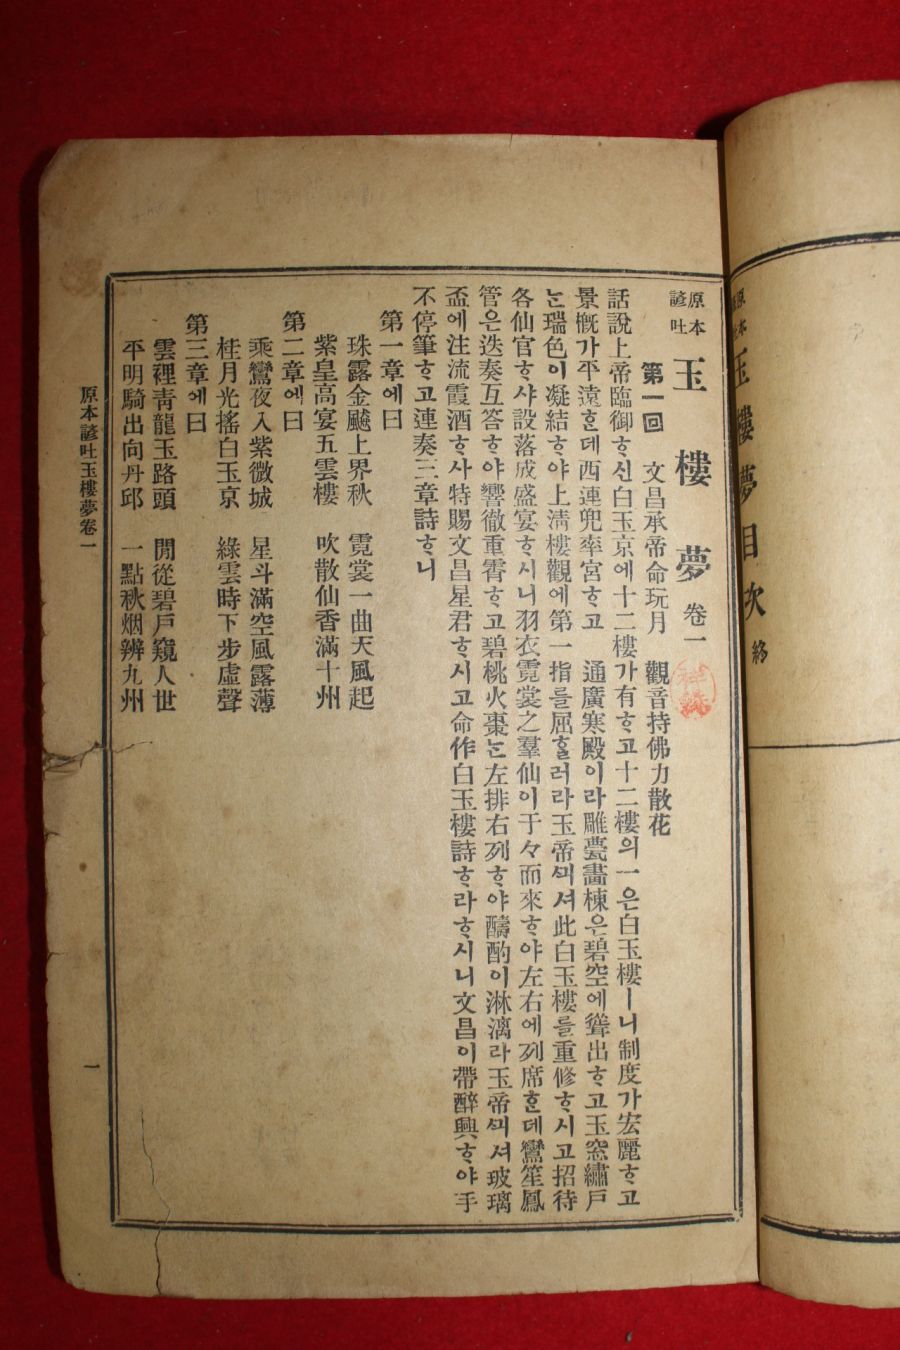 原本諺吐 玉樓夢 卷一
第一回 文昌承帝命玩月 觀音持佛力散花
話說上帝臨御ᄒᆞ신白玉京에十二樓가有ᄒᆞ고十二樓의一은白玉樓ㅣ니制度가宏麗ᄒᆞ고
景槪가平遠ᄒᆞᆫ데西連兜率宮ᄒᆞ고 通廣寒殿이라雕甍畵棟은碧空에聳出ᄒᆞ고玉窓繡戶
ᄂᆞᆫ瑞色이凝結ᄒᆞ야上淸樓觀에第一指를屈ᄒᆞᆯ러라玉帝ᄭᅴ셔此白玉樓를重修ᄒᆞ시고招待
各仙官ᄒᆞ샤設落成盛宴ᄒᆞ시니羽衣霓裳之羣仙이于々而來ᄒᆞ야左右에列席ᄒᆞᆫ데鸞笙鳳
管은迭奏互答ᄒᆞ야響徹重霄ᄒᆞ고碧桃火棗ᄂᆞᆫ左排右列ᄒᆞ야醻酌이淋漓라玉帝ᄭᅴ셔玻璃
盃에注流霞酒ᄒᆞ사特賜文昌星君ᄒᆞ시고命作白玉樓詩ᄒᆞ라ᄒᆞ시니文昌이帶醉興ᄒᆞ야手
不停筆ᄒᆞ고連奏三章詩ᄒᆞ니
第一章에曰
珠露金飈上界秋 霓裳一曲天風起
紫皇高宴五雲樓 吹散仙香滿十州
第二章에曰
乘鸞夜入紫微城 星斗滿空風露薄
桂月光搖白玉京 綠雲時下步虛聲
第三章에曰
雲裡靑龍玉路頭 閒從碧戶窺人世
平明騎出向丹邱 一點秋烟辨九州
原本諺吐玉樓夢卷一
一
原本
玉樓夢目次 終